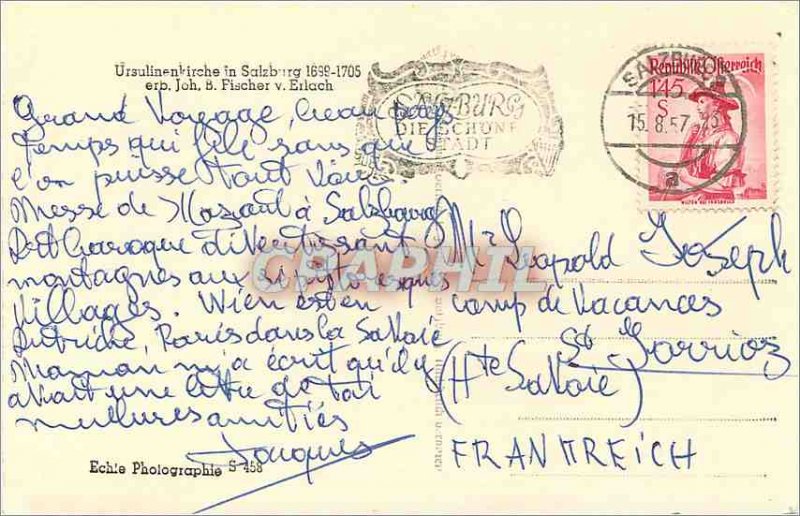 Ursulinenkirche in Salzburg 1699-1705
erb. Joh. B. Fischer v. Erlach
SALZBURG
DIE SCHÖNE
STADT
SALZBURG
15.8.57
a
Republik Österreich
145
S
Grand Voyage, beau
temps qui file sans que
l'on puisse tout voir.
Messe de Mozart à Salzbourg
Art baroque divertissant
montagnes aussi pittoresques
villages. Wien est en
Autriche, Paris dans la Savoie
Maman m'a écrit qu'il y
avait une lettre de toi
meilleures amitiés
Jacques
Mr Leopold Joseph
camp de vacances
St Jorrioz
(Hte Savoie)
FRANKREICH
Echte Photographie S 458
CRAPHIL